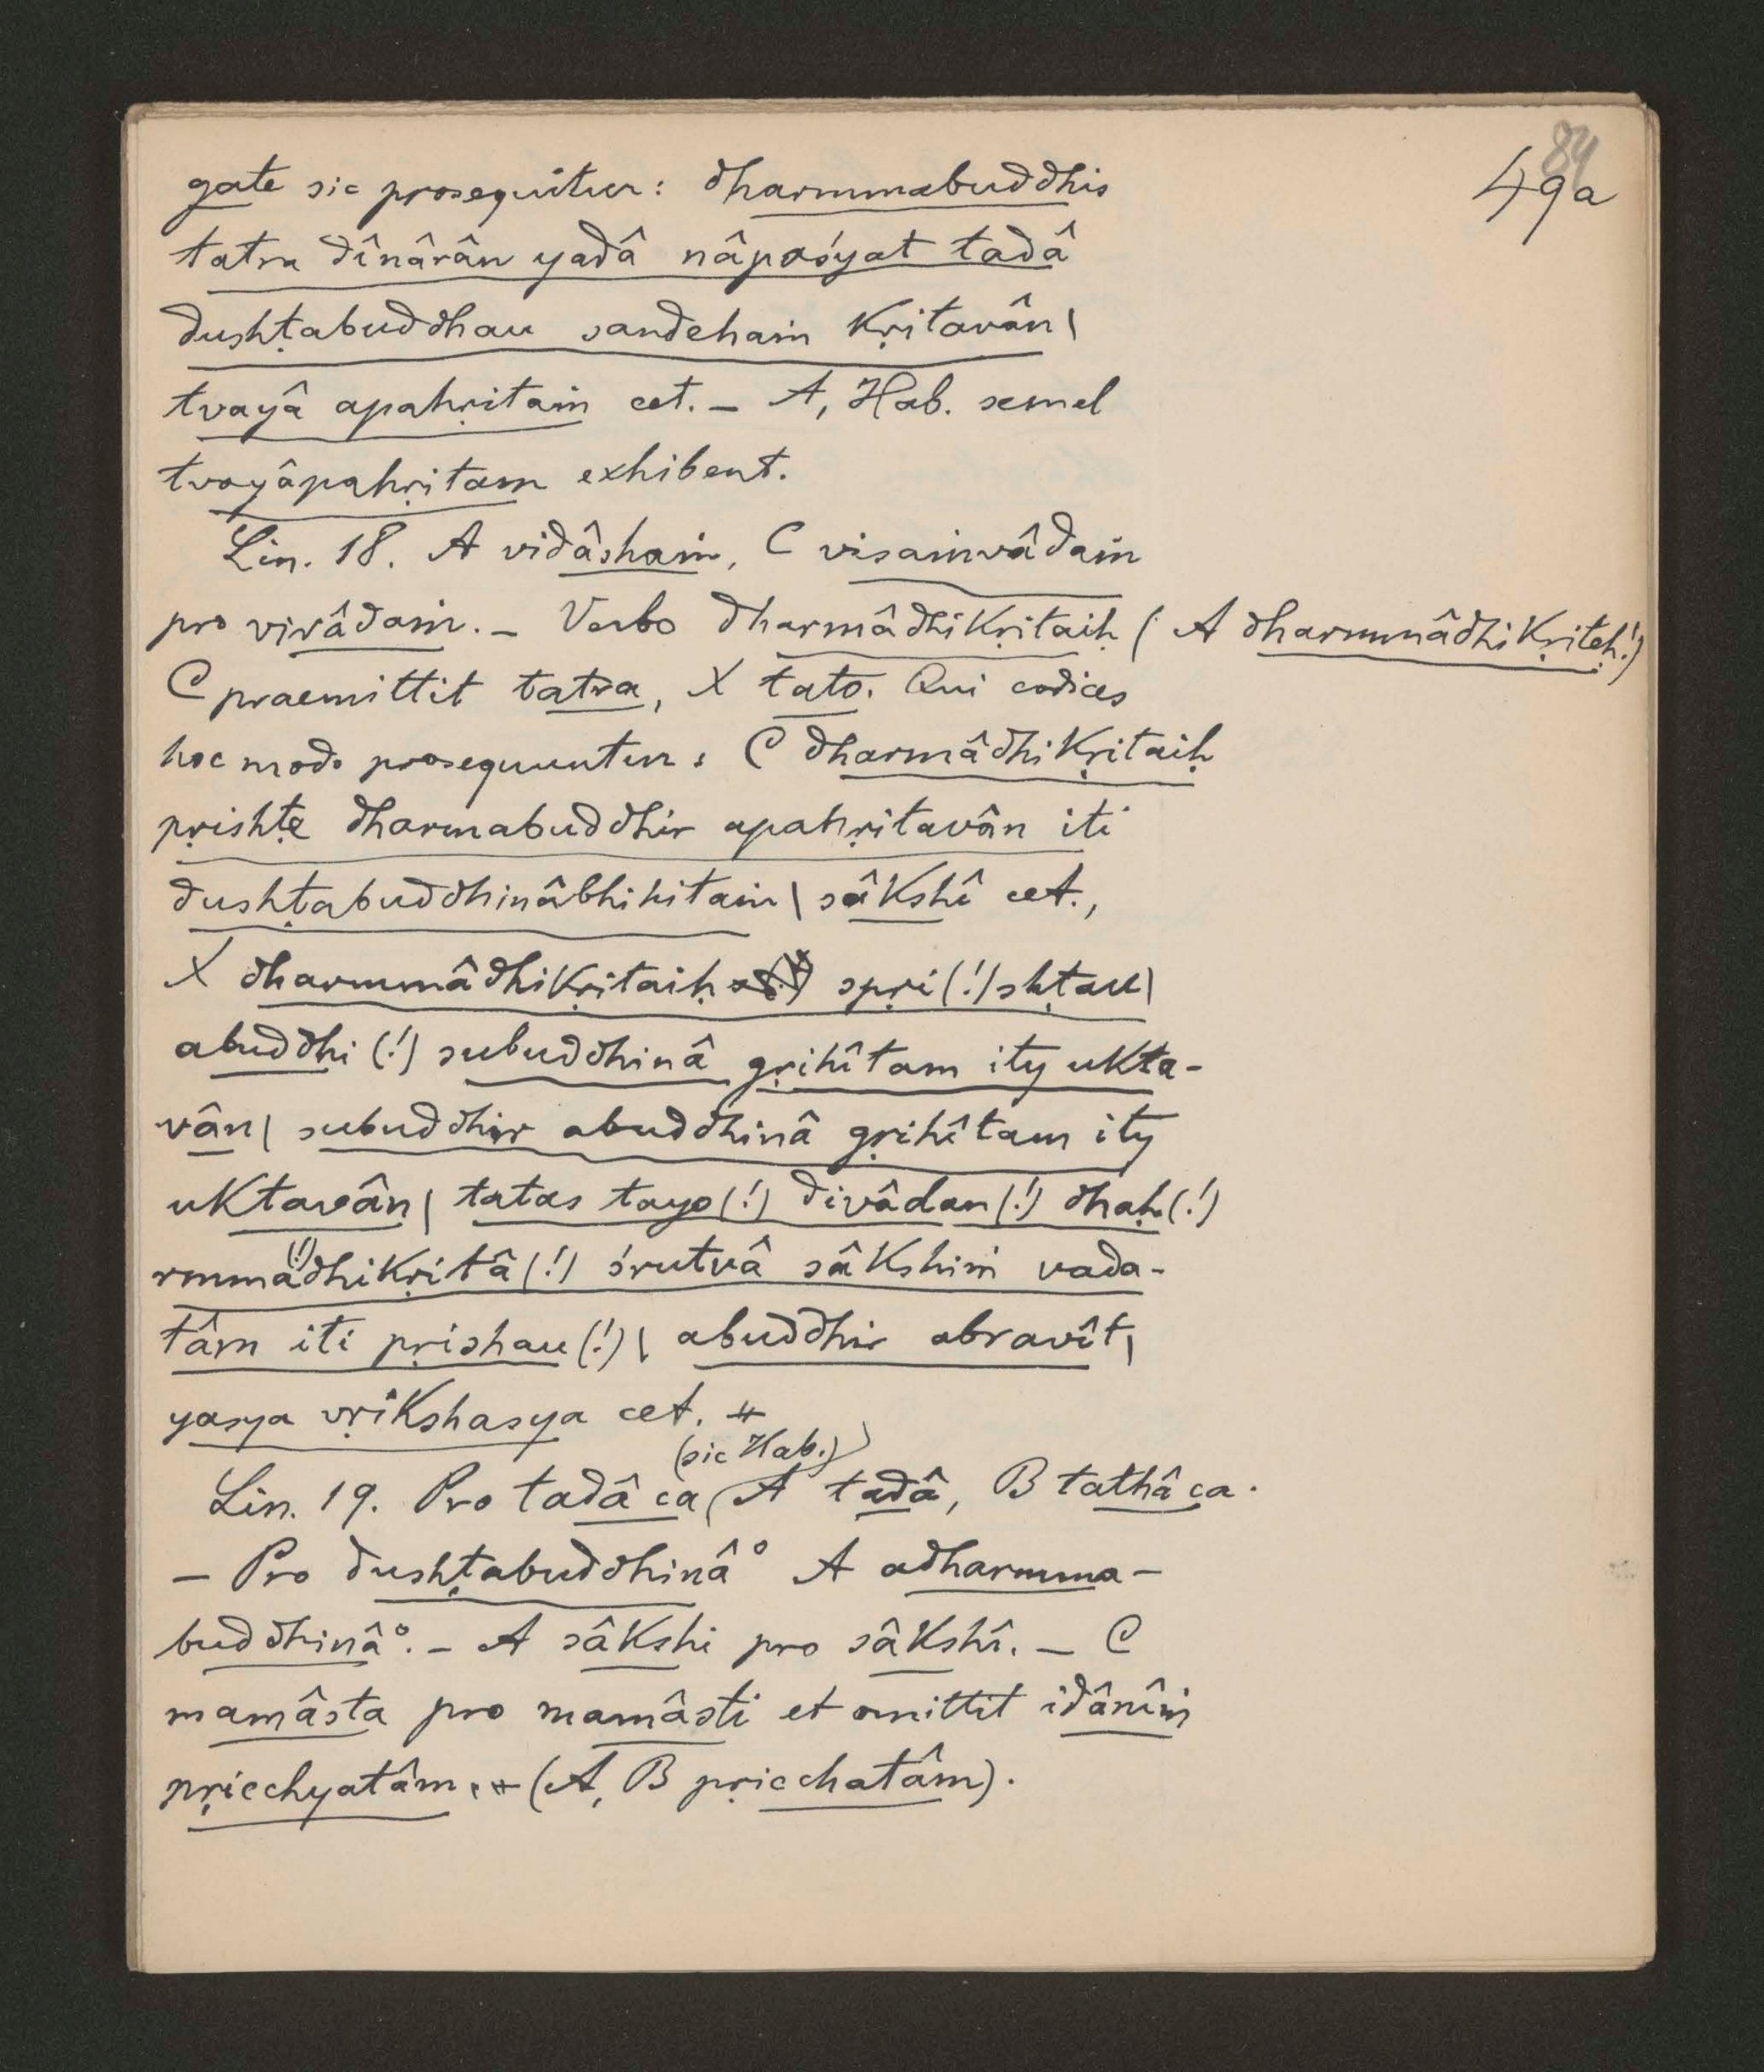 84
49a
gate sic prosequitur: dharmmabuddhis
tatra dînârân yadâ nâpaśyat tadâ
dushṭabuddhau sandehaṁ kṛitavân |
tvayâ apahṛitaṁ cet. – A, Hab. semel
tvayâpahṛitam exhibent.
Lin. 18. A vidâshaṁ, C visaṁvâdaṁ
pro vivâdaṁ. – Verbo dharmâdhikṛitaiḥ (A dharmmâdhikṛiteḥ!)
C praemittit tatra, X tato. Qui codices
hoc modo prosequuntur: C dharmâdhikṛitaiḥ
pṛishṭe dharmabuddhir apahṛitavân iti
dushṭabuddhinâbhihitaṁ | sâkshî cet.,
X dharmmâdhikṛitaiḥ spṛi(!)shṭau |
abuddhi (!) subuddhinâ gṛihîtam ity ukta-
vân | subuddhir abuddhinâ gṛihîtam ity
uktavân | tatas tayo (!) divâdan (!) dhaḥ (!)
rmma(!)dhikṛitâ (!) śrutvâ sâkshiṁ vada-
tâm iti pṛishau (!) | abuddhir abravît |
yasya vṛikshasya cet. #
Lin. 19. Pro tadâ ca (sic Hab.) A tadâ, B tathâ ca.
– Pro dushṭabuddhinâ° A adharmma-
buddhinâ°. – A sâkshi pro sâkshî. – C
mamâsta pro mamâsti et omittit idânîṁ
pṛicchyatâm. # (A, B pṛicchatâm).